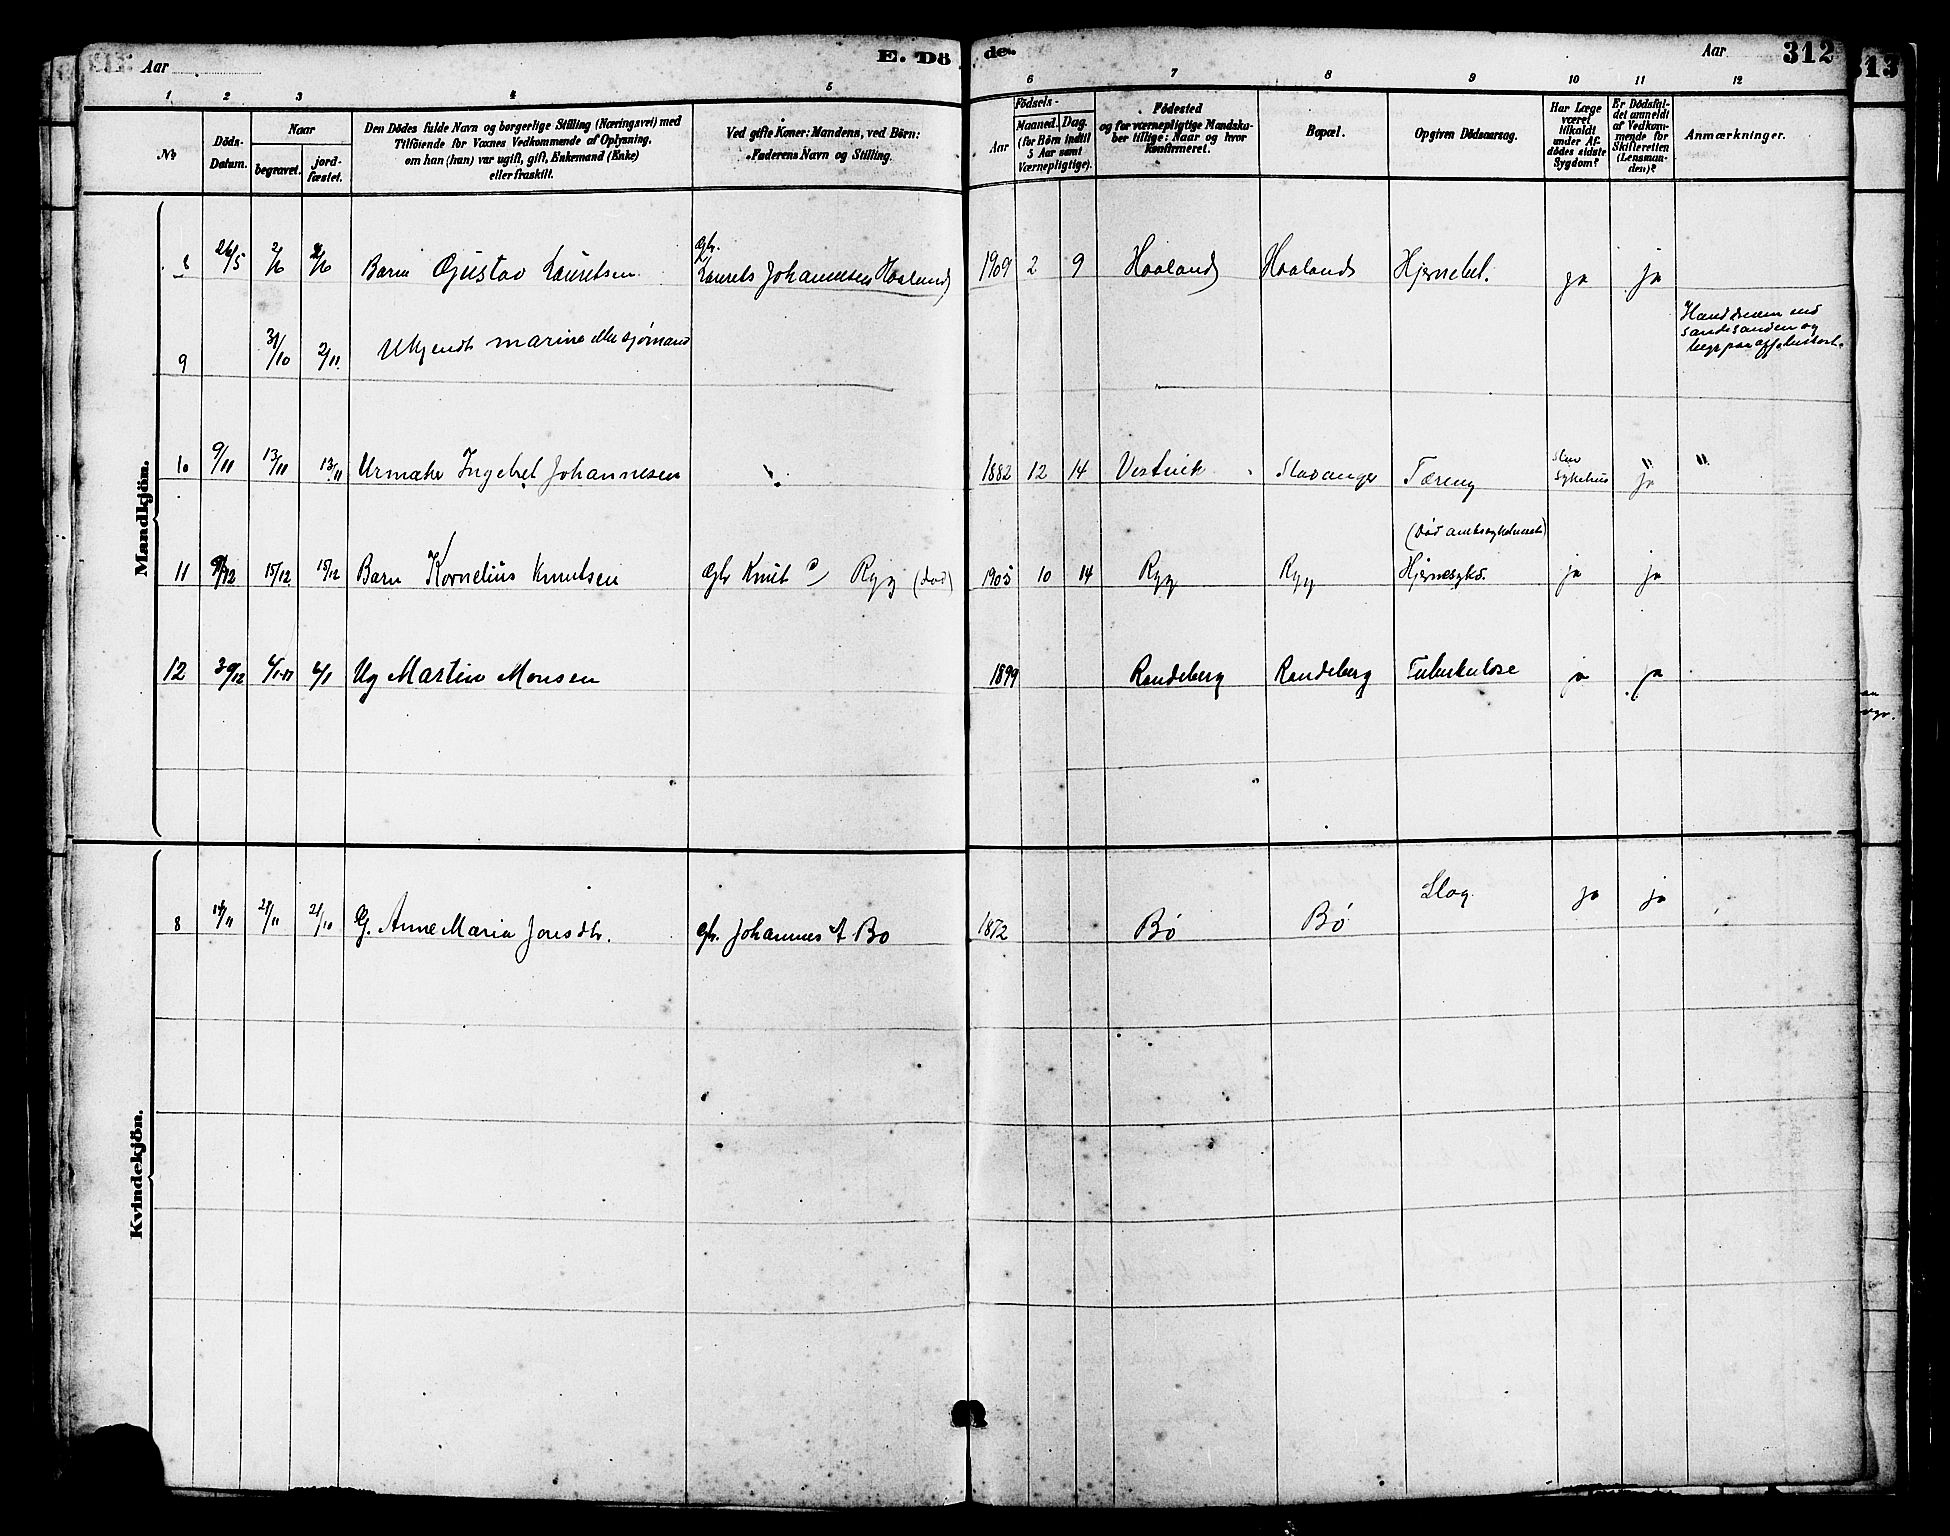 Aar
E. Dö de.
Aar
312
313
1 2 3 4 5 6 7 8 9 10 11 12
No
Döds-Datum.
Naar
begravet. jordfæstet.
Den Dödes fulde Navn og borgerlige Stilling (Næringsvei) med
Tilföiende for Voxnes Vedkommende af Oplysning,
om han (hun) var ugift, gift, Enkemand (Enke)
eller fraskilt.
Ved gifte Koner: Mandens, ved Börn:
Faderens Navn og Stilling.
Födsels-
Aar
Maaned. Dag.
(for Börn indtil
5 Aar samt
Værnepligtige).
Födested
og for værnepligtige Mandska-
ber tillige: Naar og hvor
Konfirmeret.
Bopæl.
Opgiven Dödsaarsag.
Har Læge
været
tilkaldt
under Af-
dödes sidste
Sygdom?
Er Dödsfal-
det anmeldt
af Vedkom-
mende for
Skifteretten
(Lensman-
den)?
Anmærkninger.
Mandkjön.
8 26/5 2/6 2/6 Barn Gustav Lauretsen Gbr. Laurets Johannesen Haaland 1909 2 9 Haaland Haaland Hjernebet. ja ja
9 31/10 2/11 Ukjendt marine eller sjømand
10 9/11 13/11 13/11 Urmaker Ingebret Johannesen " 1882 12 14 Vestvik Stavanger Tæring Stav Sykehus " ja "
11 9/12 15/12 15/12 Barn Kornelius Knutsen Gbr Knut Ryg (död) 1905 10 14 Ryg Ryg (Död amtssykehuset) Hjernesykd. ja ja
12 30/12 6/1-17 6/1 Ug Martin Monsen 1899 Randeberg Randeberg Tuberkulose ja ja
Kvindekjön.
8 14/11 21/11 21/11 G. Anne Maria Jonsdtr. gbr. Johannes A Bø 1872 Bø Bø Slag ja ja